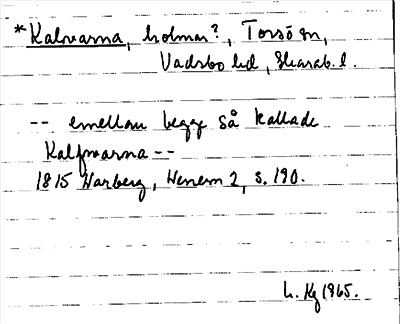 *Kalvarna, holmar?, Torsö sn,
Vadsbo hd, Skarab. l.
-- emellan begge så kallade
Kalfwarna --
1815 Warberg, Wenern 2, s. 190.
L. Kg 1965.